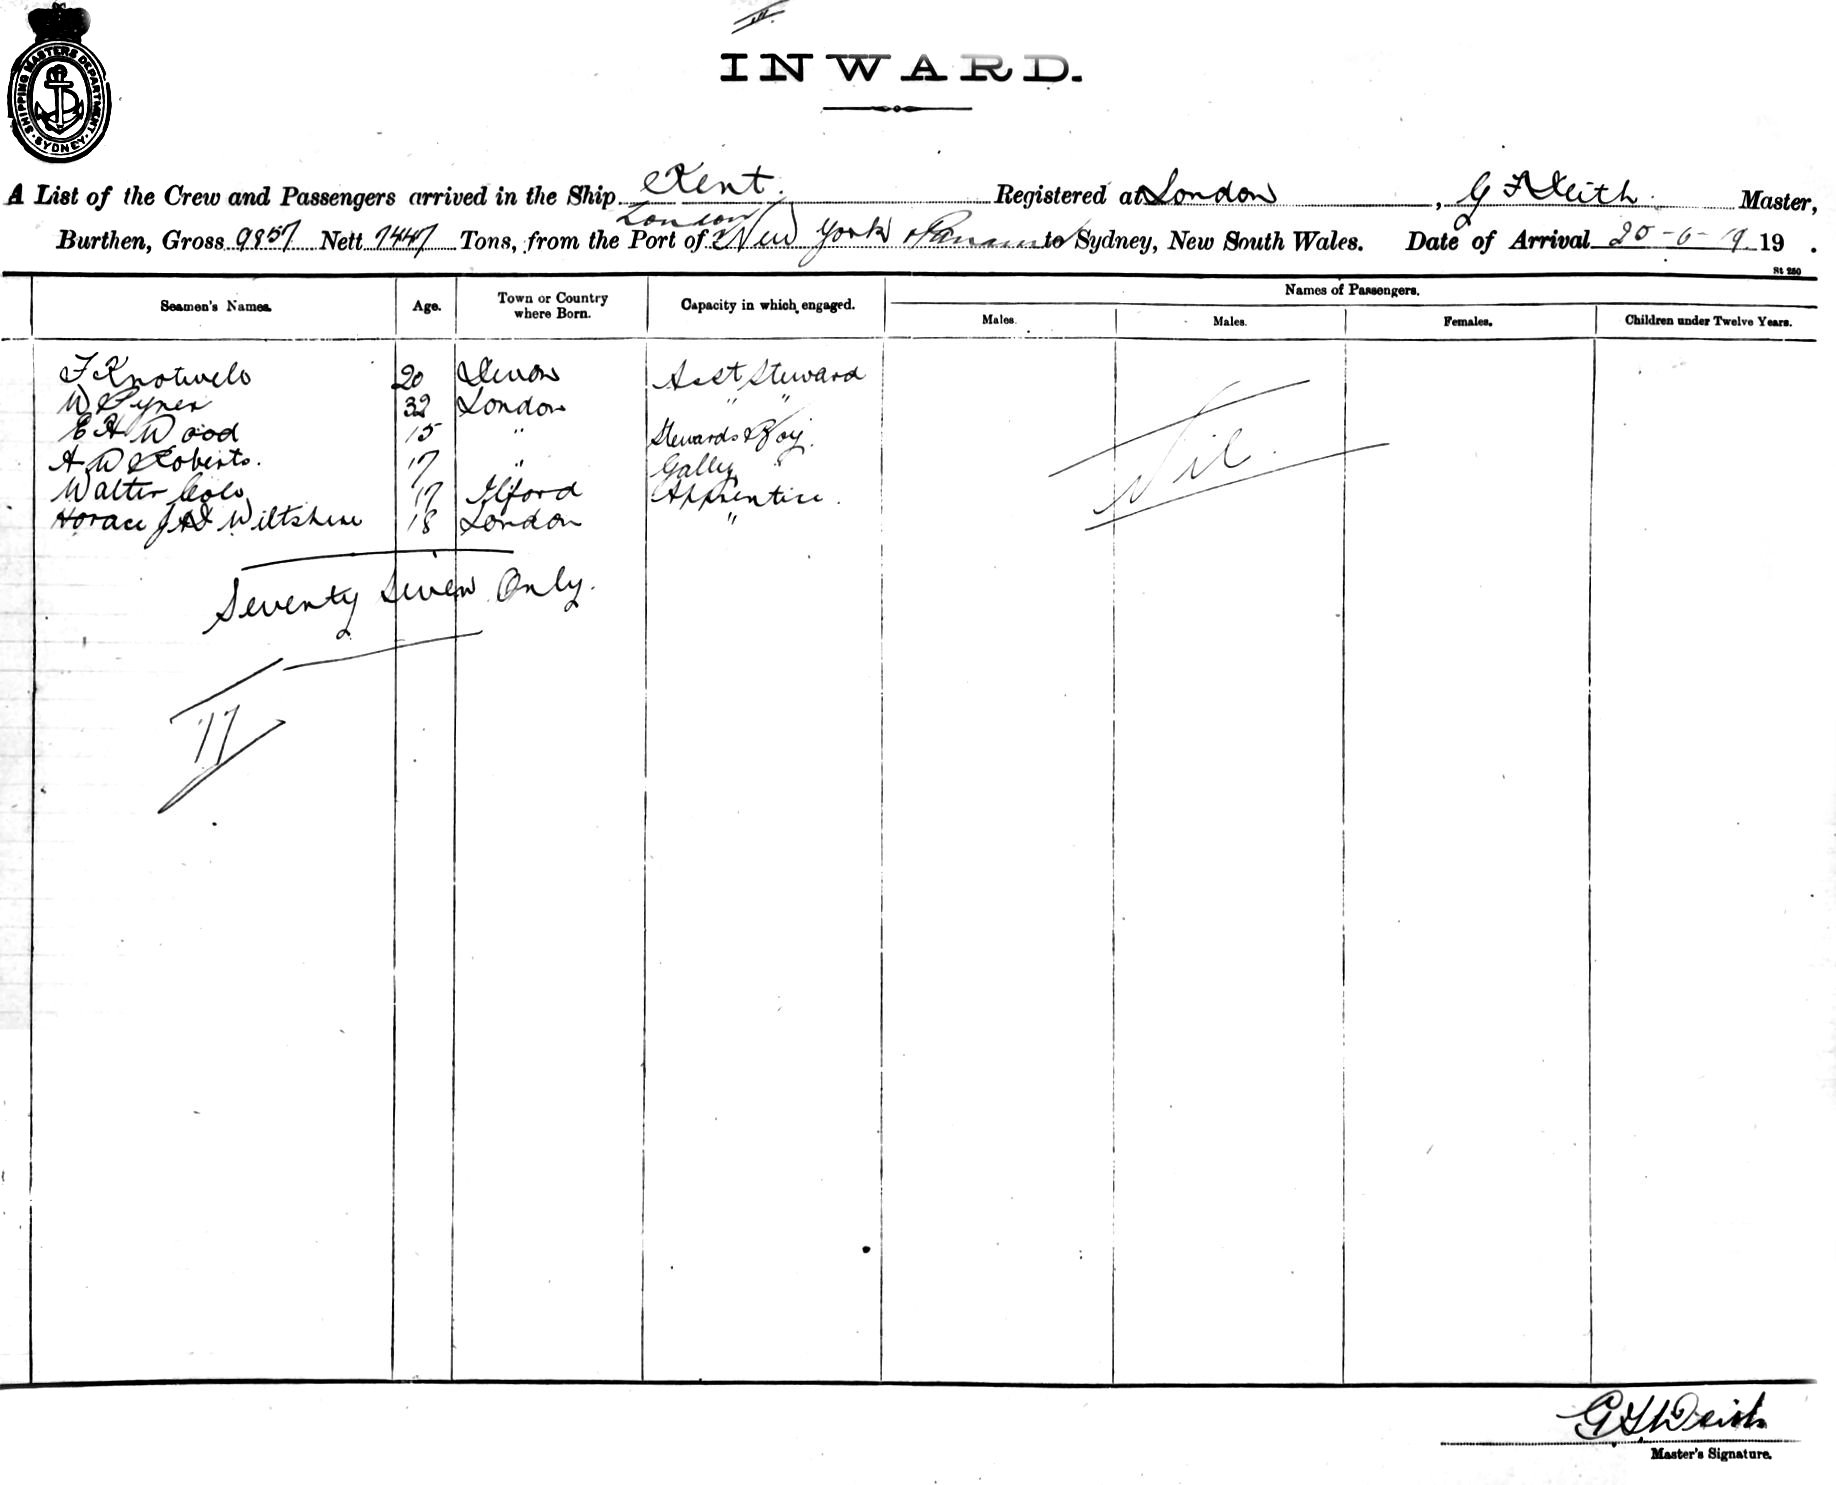 III
SHIPPING MASTERS DEPARTMENT. SYDNEY
INWARD.
A List of the Crew and Passengers arrived in the Ship Kent. Registered at London, G F Master,
London
Burthen, Gross 9857 Nett 7447 Tons, from the Port of New York & Panama to Sydney, New South Wales. Date of Arrival 20-6-19 19 .
St 250
Seamen's Names. Age. Town or Country where Born. Capacity in which engaged. Names of Passengers.
Males. Males. Females. Children under Twelve Years.
F 20 Devon Asst Steward
W 32 London " "
E H Wood 15 " Stewards Boy.
A W Roberts. 17 " Galley "
Walter Cole 17 Ilford Apprentice.
Horace J Wiltshire 18 London "
Nil.
Seventy Seven Only.
77
G
Master's Signature.